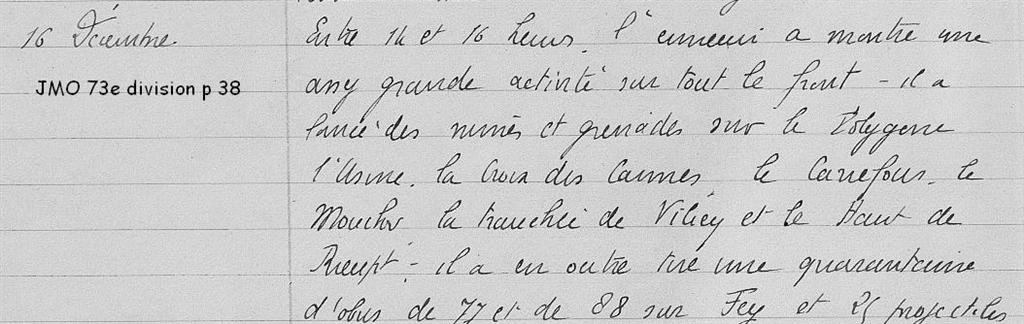 16 Décembre.
JMO 73e division p 38
Entre 14 et 16 heures, l'ennemi a montré une
assez grande activité sur tout le front - il a
lancé des mines et grenades sur le Polygone
l'Usine, la Croix des Carmes, le Carrefour, le
Mouchoir la tranchée de Vilcey et le Haut de
Rieupt - il a en outre tiré une quarantaine
d'obus de 77 et de 88 sur Fey et 25 projectiles